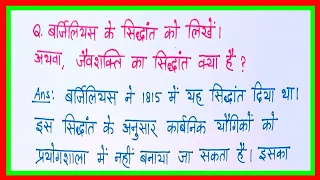 Q. बर्जिलियस के सिद्धांत को लिखें।
अथवा, जैवशक्ति का सिद्धांत क्या है ?
Ans: बर्जिलियस ने 1815 में यह सिद्धांत दिया था।
इस सिद्धांत के अनुसार कार्बनिक यौगिकों को
प्रयोगशाला में नहीं बनाया जा सकता है। इसका